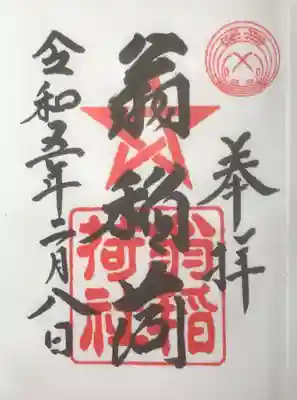 奉拝
翁稲荷
翁稲
荷社
令和五年二月八日